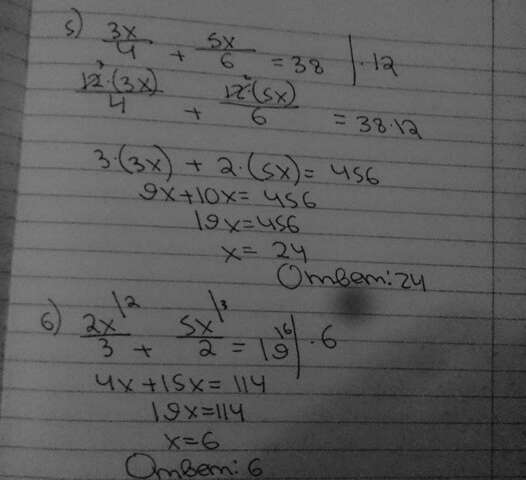 5) 3x/4 + 5x/6 = 38 | · 12
12³·(3x)/4 + 12²·(5x)/6 = 38·12
3·(3x) + 2·(5x) = 456
9x+10x = 456
19x=456
x = 24
Ответ: 24
6) 2x|²/3 + 5x|³/2 = 19|⁶ | · 6
4x+15x = 114
19x=114
x=6
Ответ: 6